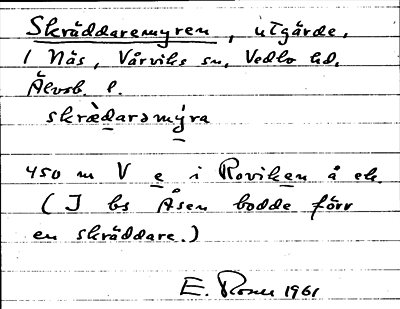 Skräddaremyren, utgärde,
1 Näs, Vårviks sn, Vedbo hd,
Älvsb. l.
skrädarəmýra
450 m V e i Roviken å ek.
( I bs Åsen bodde förr
en skräddare.)
E. 1961